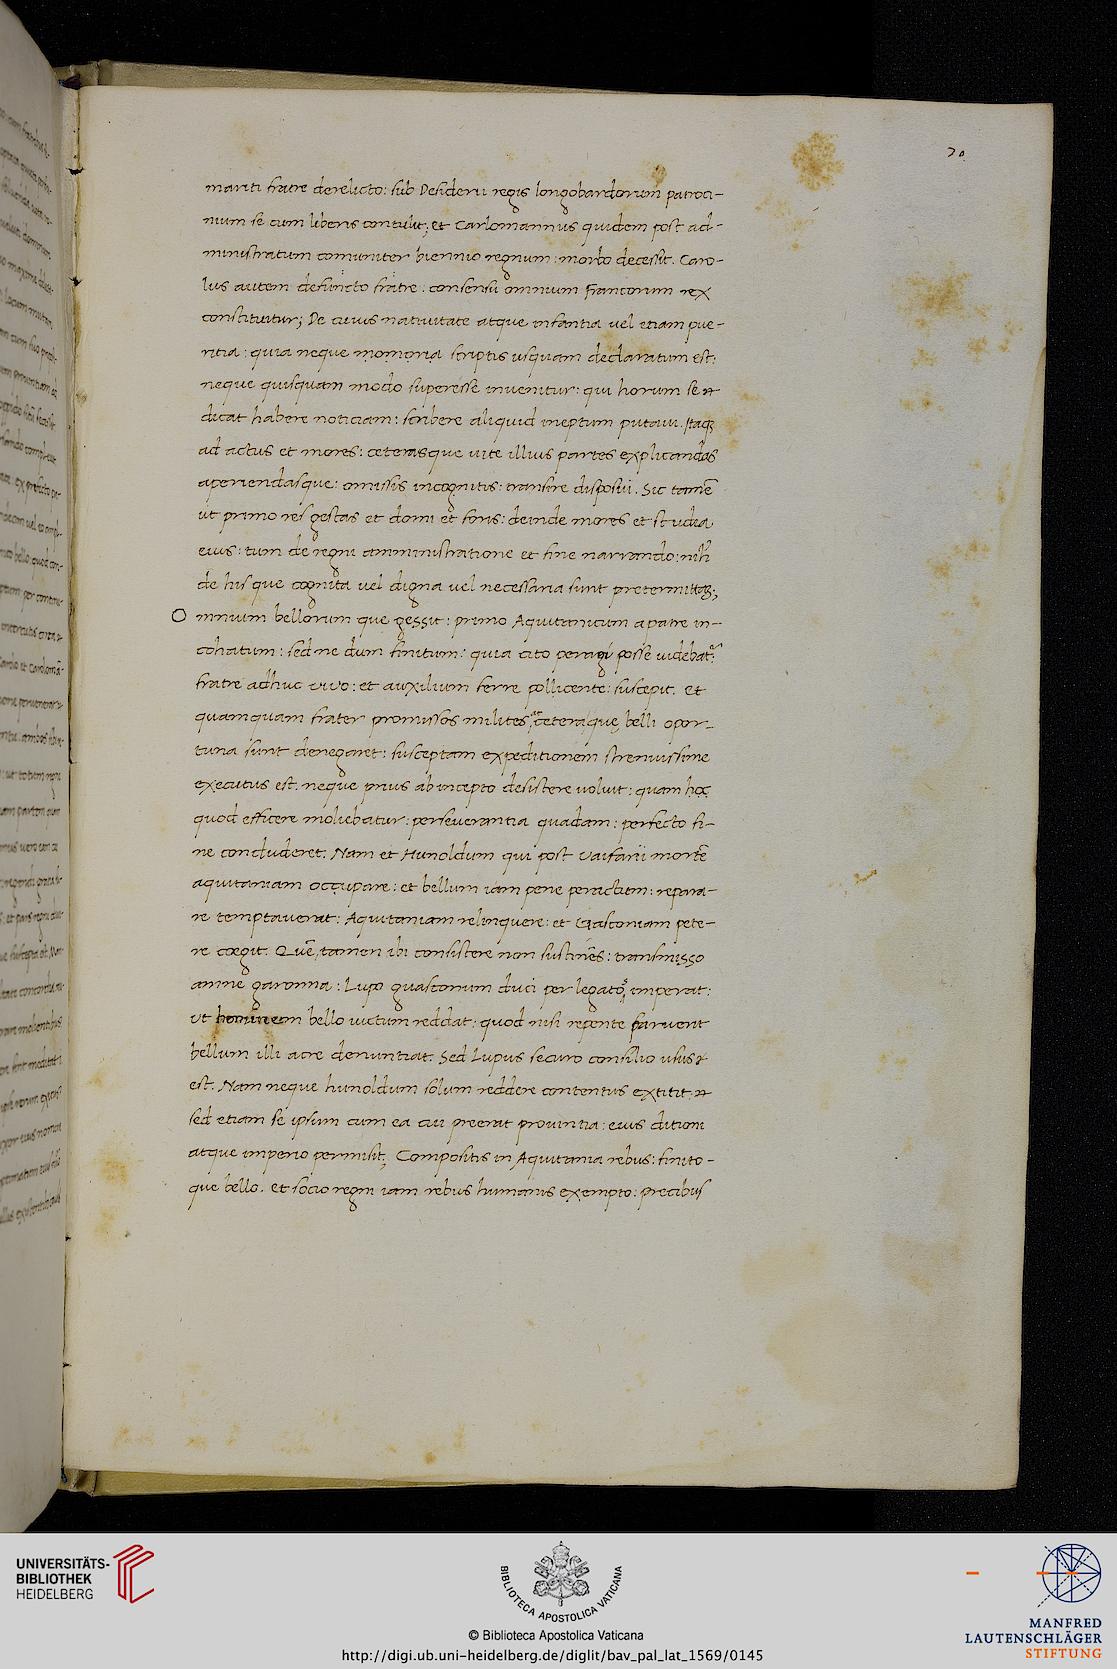 70
mariti fratre derelicto: sub Desiderii regis longobardorum patroci-
nium se cum liberis contulit; et Carlomannus quidem post ad-
ministratum comuniter biennio regnum: morbo decessit. Caro-
lus autem defuncto fratre: consensu omnium francorum rex
constituitur; De cuius nativitate atque infantia vel etiam pue-
ritia: quia neque memoria scriptis usquam declaratum est:
neque quisquam modo superesse invenitur: qui horum se
dicat habere noticiam: scribere aliquid ineptum putavi. Itaqꝫ
ad actus et mores: ceterasque vite illius partes explicandas
aperiendasque: omissis incognitis: transire disposui. Sic tamē
ut primo res gestas et domi et foris: deinde mores et studia
eius: tum de regni amministratione et fine narrando: nihˡ
de his que cognita vel digna vel necessaria sunt pretermittaꝫ;
O mnium bellorum que gessit: primo Aquitanicum a patre in-
cohatum: sed ne dum finitum: quia cito peragi posse videbat᷒
fratre adhuc vivo: et auxilium ferre pollicente: suscepit. et
quamquam frater promissos milites, et cetera que belli opor-
tuna sunt denegaret: susceptam expeditionem strenuissime
executus est. neque prius ab incepto desistere voluit: quam hoc
quod efficere moliebatur: perseverantia quadam: perfecto fi-
ne concluderet. Nam et Hunoldum qui post Vaifarii mortē
aquitaniam occupare: et bellum iam pene peractum: repara-
re temptaverat: Aquitaniam relinquere: et Gasconiam pete-
re coegit. Quē tamen ibi consistere non sustinēs: transmisso
amne garonna: Lupo guasconum duci per legatos imperat:
ut hominem bello victum reddat: quod nisi repente faruent
bellum illi acre denuntiat. Sed Lupus securo consilio usus
est. Nam neque hunoldum solum reddere contentus extitit:
sed etiam se ipsum cum ea cui preerat provintia: eius ditioni
atque imperio permisit; Compositis in Aquitania rebus: finito-
que bello. et socio regni iam rebus humanis exempto: precibus
UNIVERSITÄTS-
BIBLIOTHEK
HEIDELBERG
BIBLIOTECA APOSTOLICA VATICANA
© Biblioteca Apostolica Vaticana
http://digi.ub.uni-heidelberg.de/diglit/bav_pal_lat_1569/0145
MANFRED
LAUTENSCHLÄGER
STIFTUNG